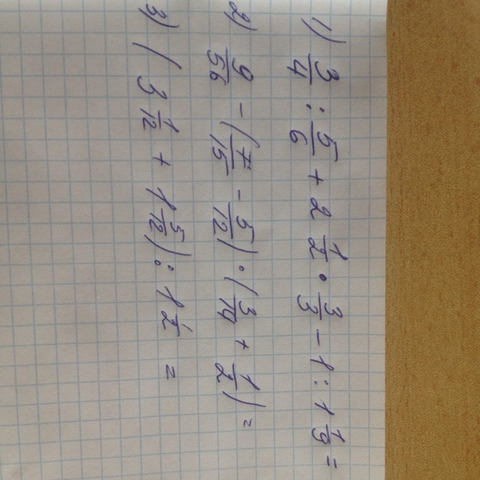 1) 3/4 : 5/6 + 2 1/2 · 3/3 - 1 : 1 1/9 =
2) 9/56 - (7/15 - 5/12) · (3/14 + 1/2) =
3) (3 1/12 + 1 5/12) : 1 1/2 =